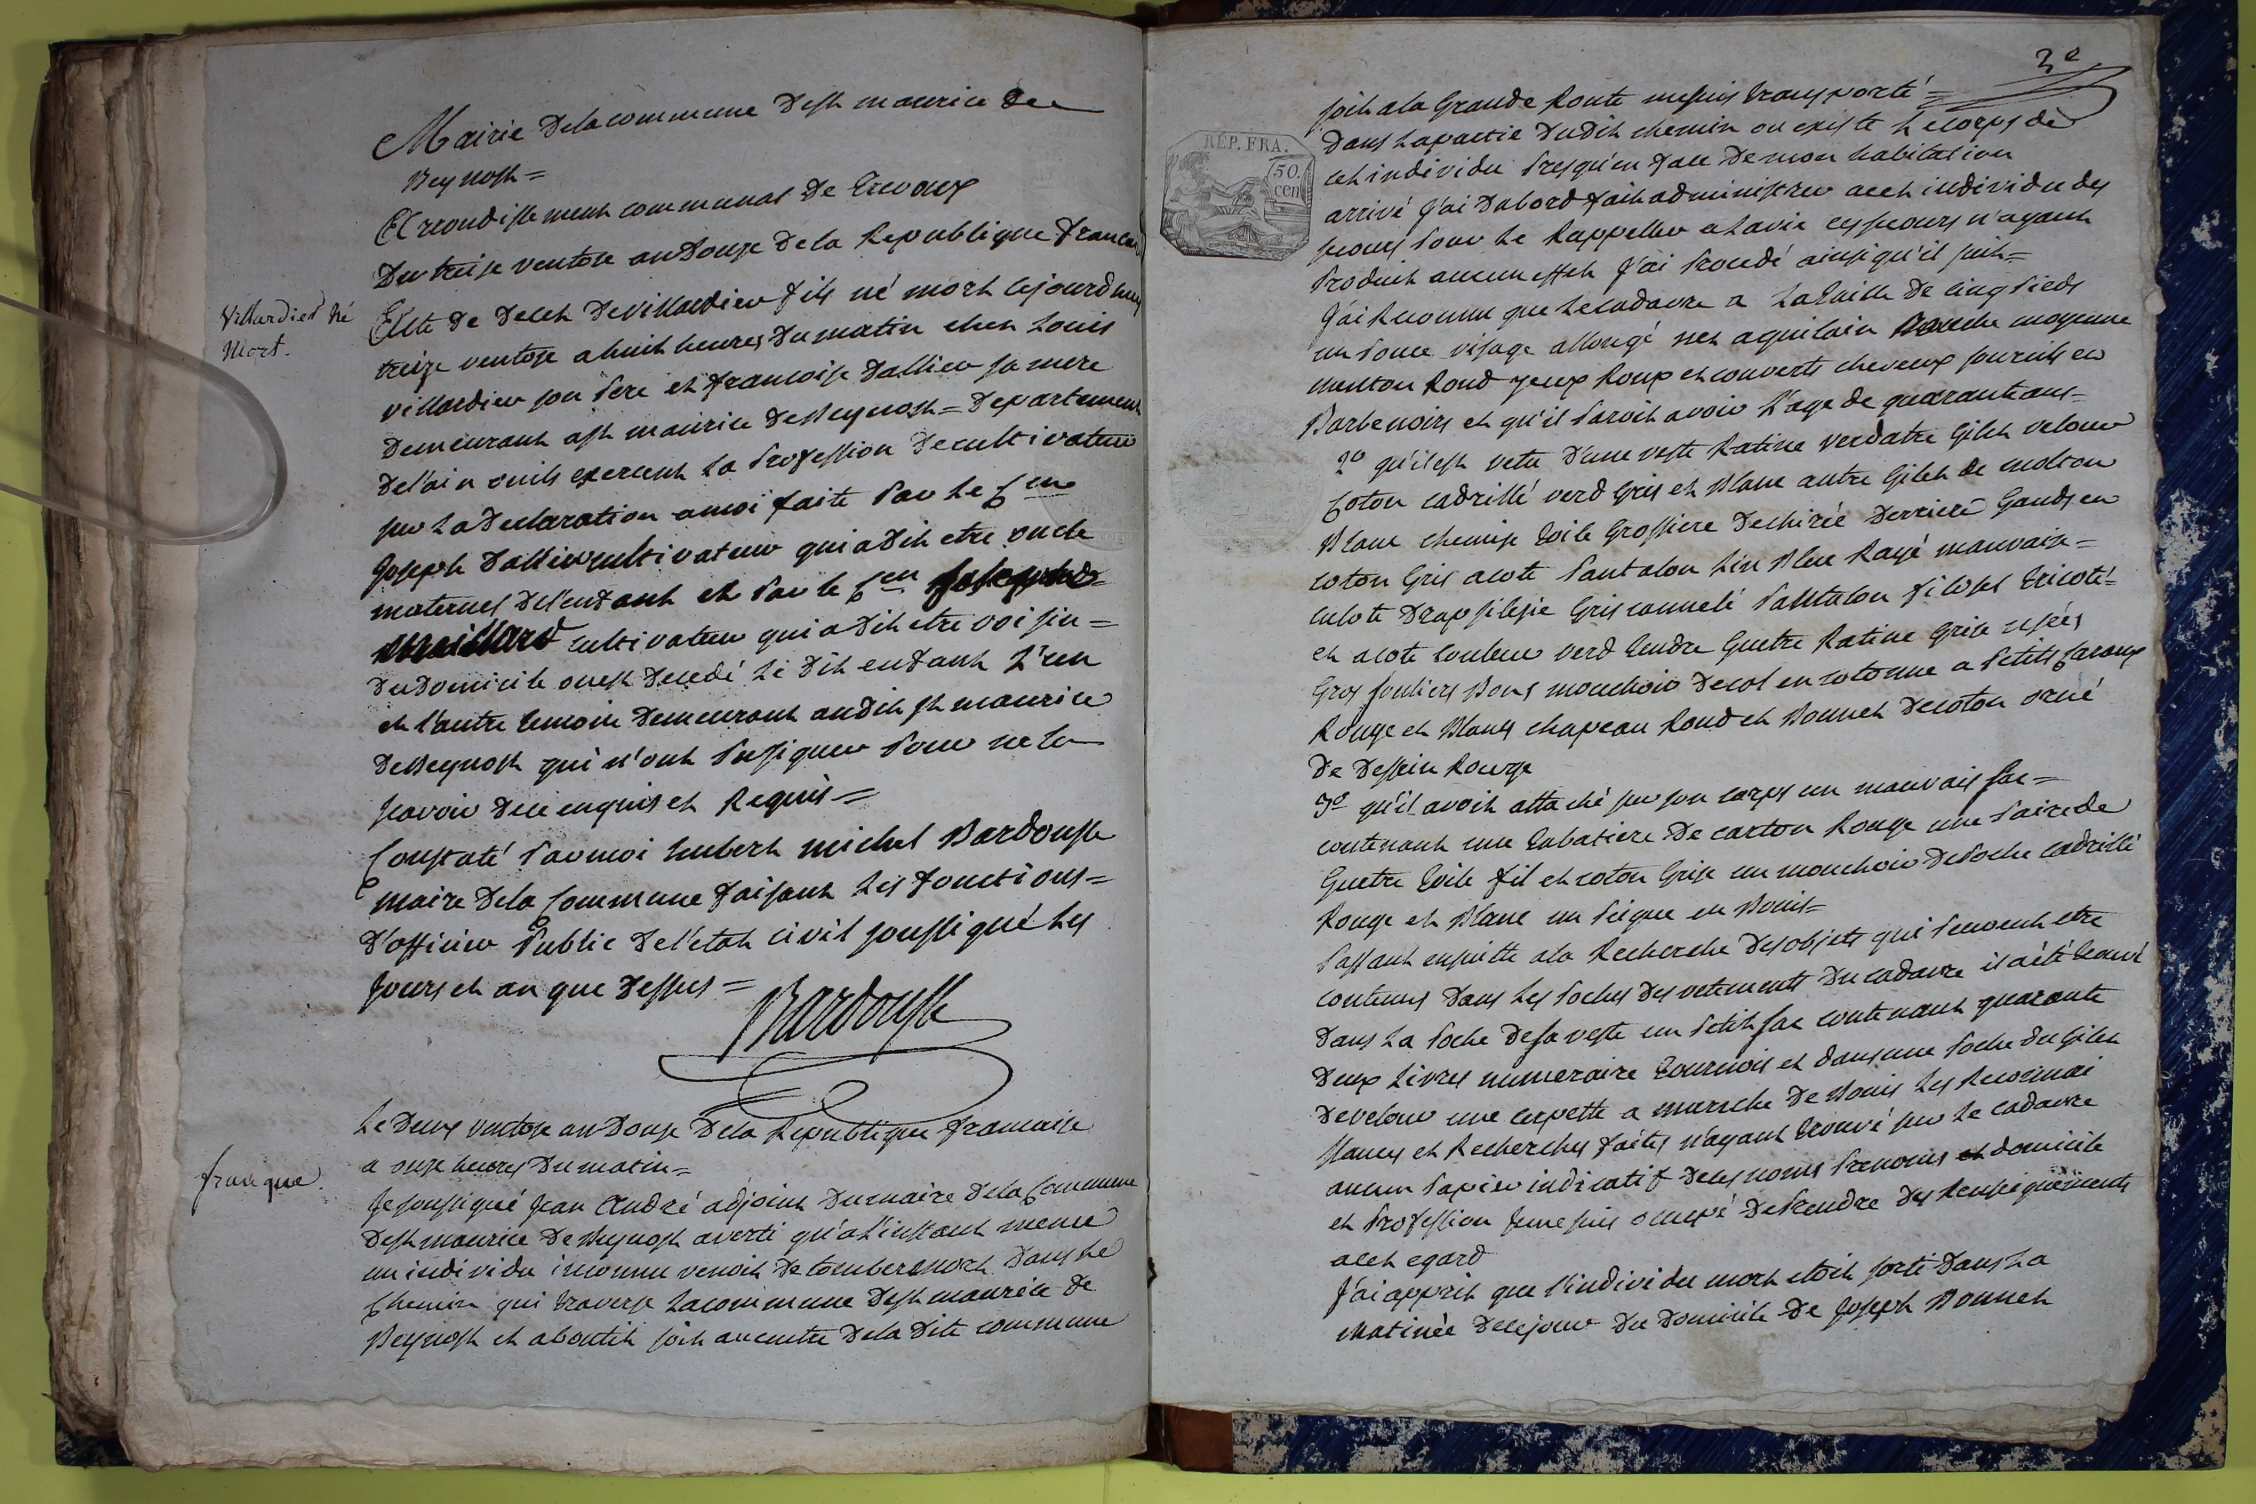 Mairie Dela commune Dest maurice De
Beynost =
Arrondissement communal De Trevoux
Du treise ventose an Douze De la Republique francai
Villardier Né
Mort.
Acte De Deceh De villardier fils né mort cejourdhuy
treize ventose a huit heures Du matin chez Louis
villardier son Pere et francoise Dallier sa mere
Demeurant ast maurice De Beynost = Departement
Del'ain ouils exercent La Profession De cultivateur
sur La Declaration a moi faite Par Le Cen
Joseph Dallier cultivateur qui a Dit etre oncle
maternel De l'enfant et Par le Cen
cultivateur qui a Dit etre voisin =
Du Domicile ou est Decedé Le Dit enfant L'un
et L'autre temoin Demeurant audit st maurice
De Beynost qui n'ont Pu signer Pour ne le
scavoir De ce enquis et Requis =
Constaté Par moi hubert michel Bardoust
maire Dela Commune faisant Les fonctions =
D'officier Public De l'etat civil soussigné Les
Jours et an que Dessus =
Bardoust
Le Deux ventose an Douze De la Republique francaise
a onze heures Du matin =
franque.
Je soussigné Jean André adjoint Du maire De la Commune
Dest maurice De Beynost averti qu'a L'instant meme
un individu inconnu venoit De tomber mort Dans Le
Chemin qui traverse La commune Dest maurice De
Beynost et aboutit soit au centre De la Dite commune
3e
RÉP. FRA.
50.
cen
soit ala Grande Route me suis transporté =
Dans La partie Dudit chemin ou existe Le corps de
cet individu Presqu'en face De mon habitation
arrivé J'ai Dabord fait administrer a cet individu des
secours Pour Le Rappeller a La vie ces secours n'ayant
Produit aucun effet J'ai Procedé ainsi qu'il suit =
J'ai Reconnu que Le cadavre a La taille De cinq Pieds
un Pouce visage allongé nez aquilain Bouche moyenne
menton Rond yeux Roux et couverts cheveux sourcils et
Barbe noirs et qu'il Paroit avoir L'age de quarante ans =
2o qu'il est vetu D'une veste Ratine verdatre Gilet velour
Coton cadrillé verd Gris et Blanc autre Gilet de molton
Blanc chemise toile Grossiere Dechirée Derriere Gands en
coton Gris a cote Pantalon Lin Bleu Rayé mauvaise =
culote Drap silesie Gris cannelé Pantalon filosel tricoté =
et a cote couleur verd tendre Guetre Ratine Grise usées
Gros souliers Bons mouchoir De col en cotonne a Petits Caraux
Rouge et Blancs chapeau Rond et Bonnet De coton orné
De Dessein Rouge
3o qu'il avoit attaché sur son corps un mauvais sac =
contenant une tabatiere De carton Rouge une Paire de
Guetre toile fil et coton Grise un mouchoir De Poche cadrillé
Rouge et Blanc un Peigne en Bouis =
Passant ensuitte ala Recherche Des objets qui Peuvent etre
contenus Dans Les Poches Des vetements Du cadavre il a été trouvé
Dans La Poche De sa veste un Petit sac contenant quarante
Deux Livres numeraire tournois et dans une Poche Du Gilet
De velour une serpette a manche De Bouis Les Reconnoi
ssances et Recherches faites n'ayant trouvé sur Le cadavre
aucun Papier indicatif De ses noms Prenoms et domicile
et Profession Je me suis occupé De Prendre Des Renseignements
acet egard
J'ai apprit que l'individu mort etoit sorti Dans La
matinée De ce jour Du Domicile De Joseph Bonnet